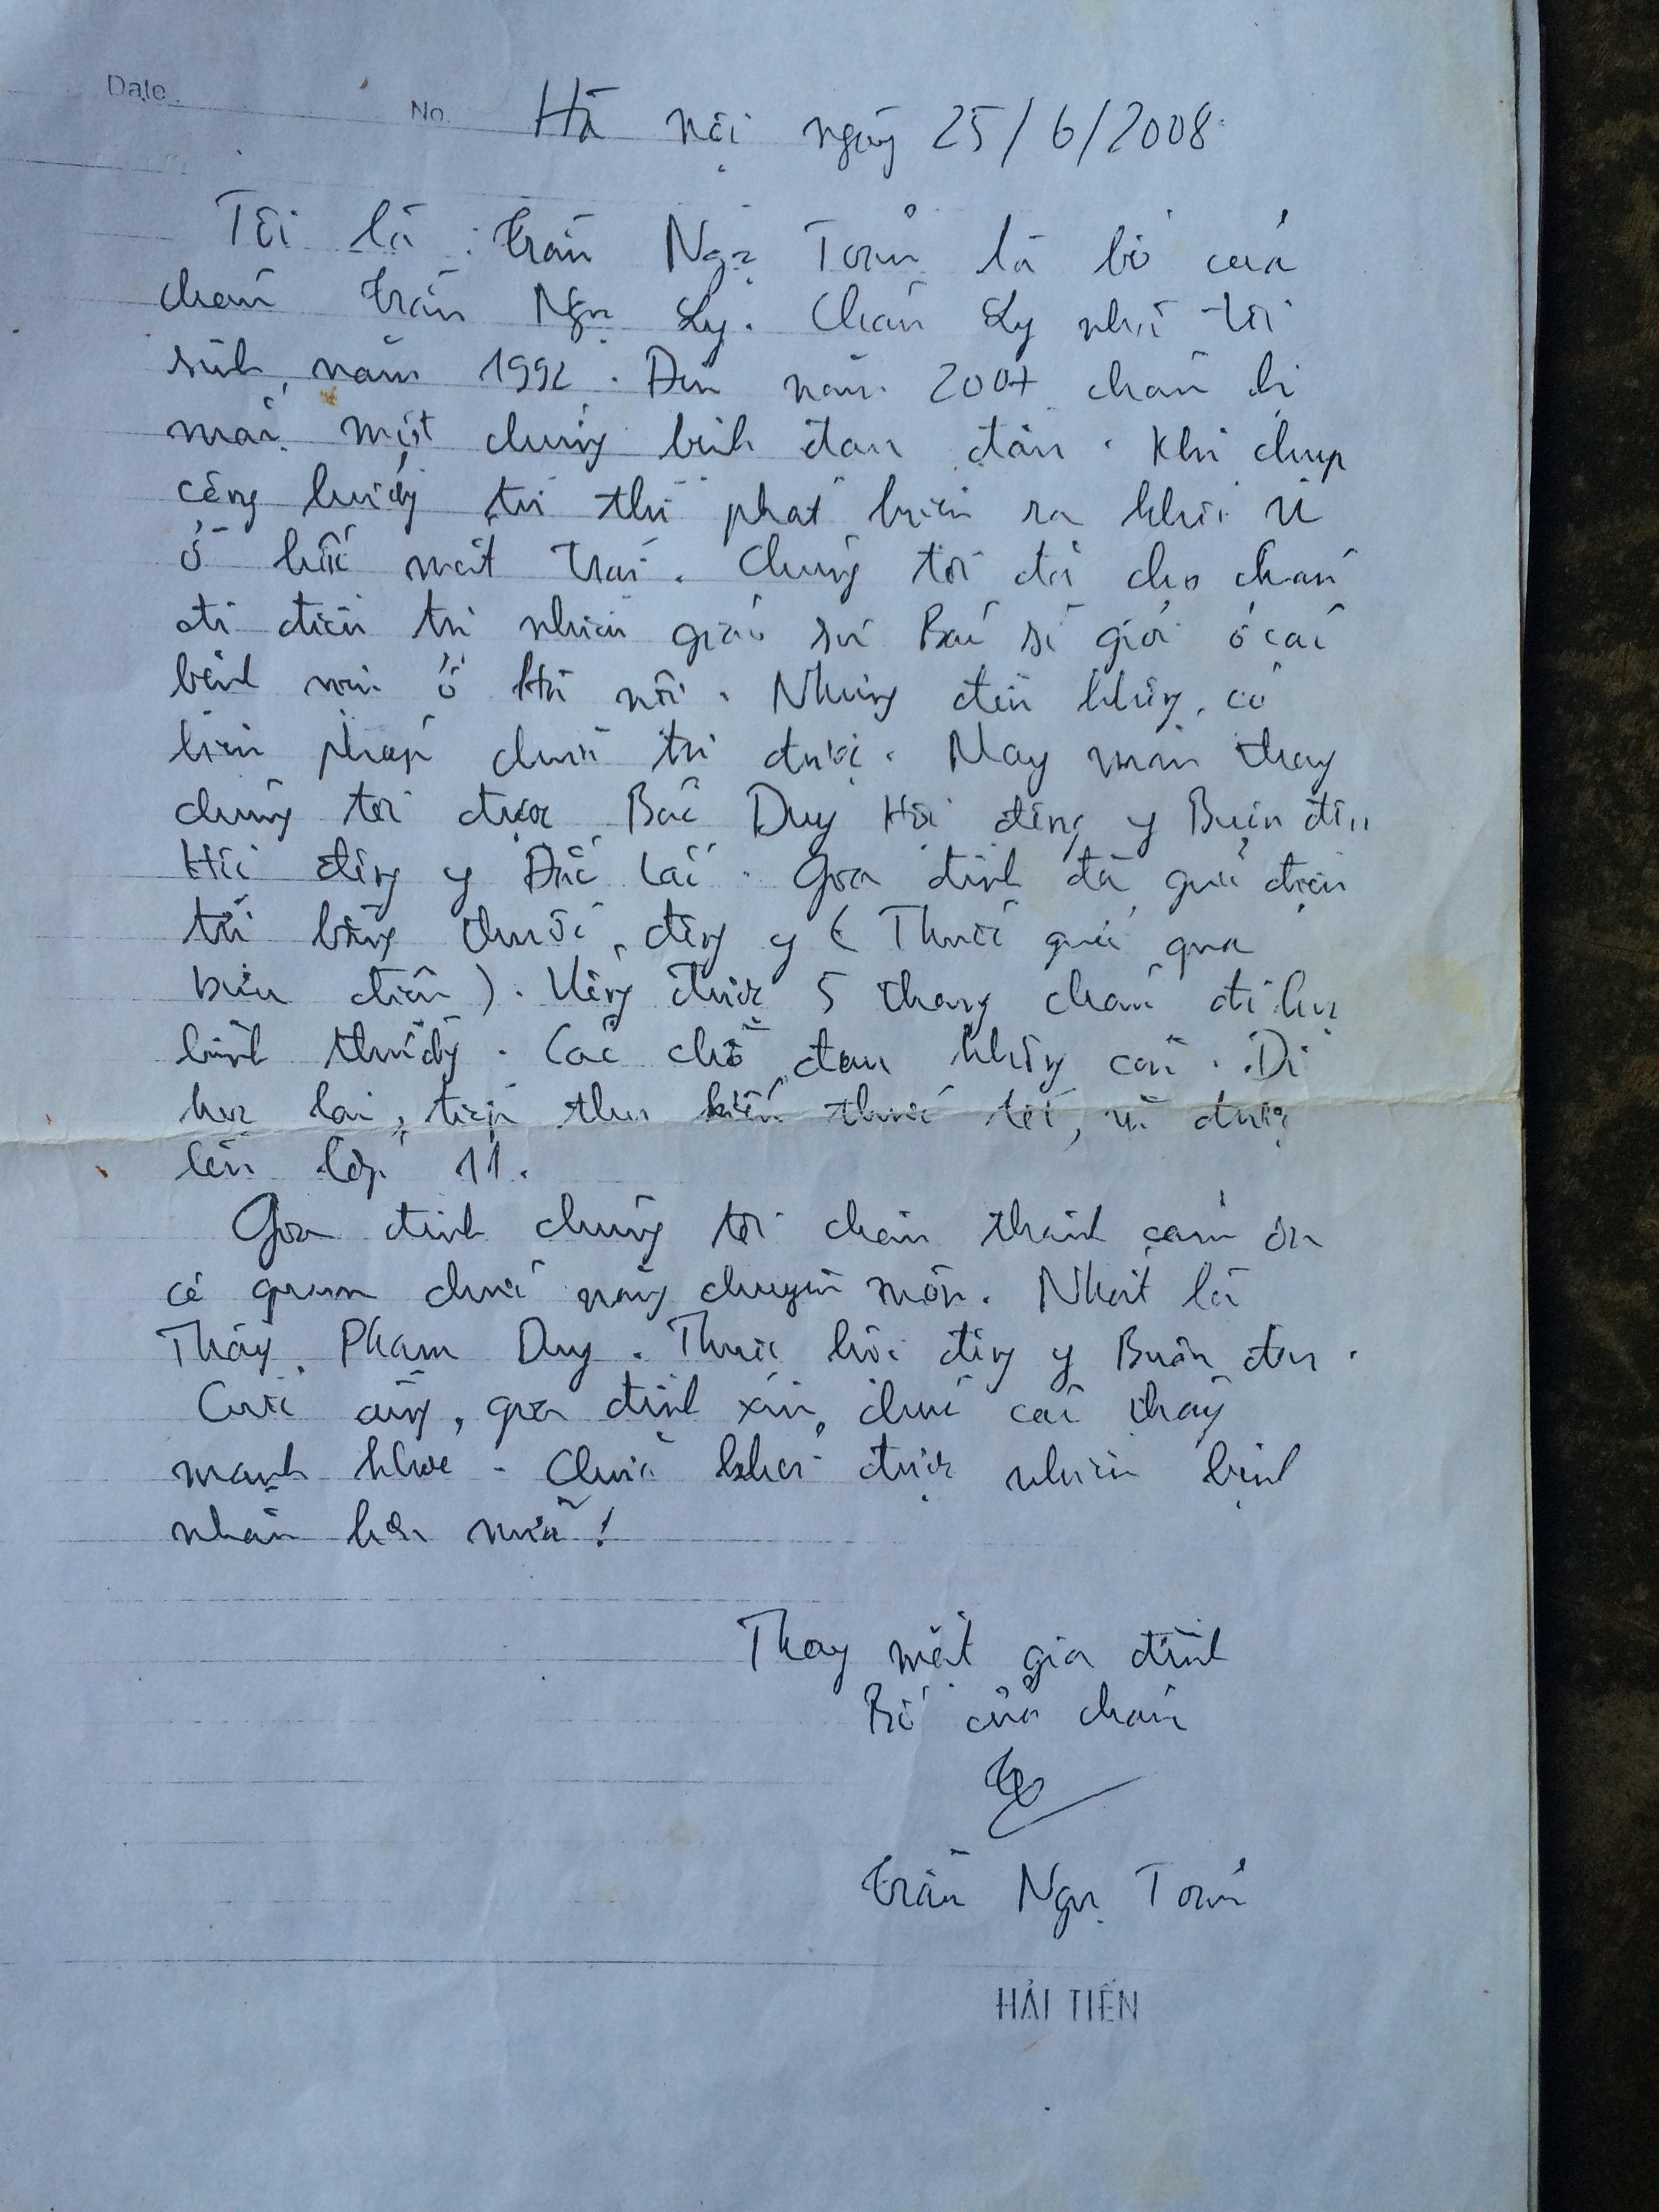 Date
No.
Hà nội ngày 25/6/2008
Tôi là: Trần Ngọc Toản là bố của
cháu Trần Ngọc Ly. Cháu Ly nhà tôi
sinh năm 1992. Đến năm 2007 cháu bị
mắc một chứng bệnh đau đầu. Khi chụp
cộng hưởng từ thì phát hiện ra khối u
ở hốc mắt trái. Chúng tôi đã cho cháu
đi điều trị nhiều giáo sư Bác sĩ giỏi ở các
bệnh viện ở Hà nội. Nhưng đều không có
biện pháp chữa trị được. May mắn thay
chúng tôi được Bác Duy Hội đông y Buôn đôn
Hội đông y Đắc Lắc. Gia đình đã gửi điều
trị bằng thuốc đông y (Thuốc gửi qua
bưu điện). Uống được 5 thang cháu đi học
bình thường. Các chỗ đau không còn. Đi
học lại, tiếp thu kiến thức tốt, và được
lên lớp 11.
Gia đình chúng tôi chân thành cảm ơn
cơ quan chức năng chuyên môn. Nhất là
Thầy Phạm Duy. Thuộc hội đông y Buôn đôn.
Cuối cùng, gia đình xin chúc các thầy
mạnh khỏe. Chữa khỏi được nhiều bệnh
nhân hơn nữa!
Thay mặt gia đình
Bố của cháu
Trần Ngọc Toản
HẢI TIẾN